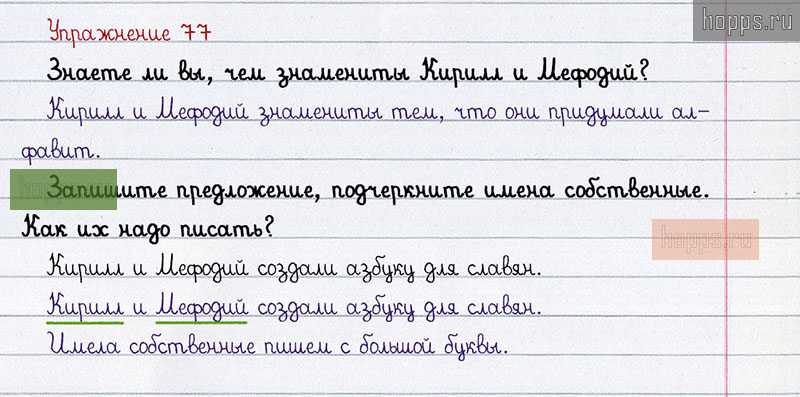 hopps.ru
Упражнение 77
Знаете ли вы, чем знамениты Кирилл и Мефодий?
Кирилл и Мефодий знамениты тем, что они придумали ал-
фавит.
Запишите предложение, подчеркните имена собственные.
Как их надо писать?
hopps.ru
Кирилл и Мефодий создали азбуку для славян.
Кирилл и Мефодий создали азбуку для славян.
Имела собственные пишем с большой буквы.